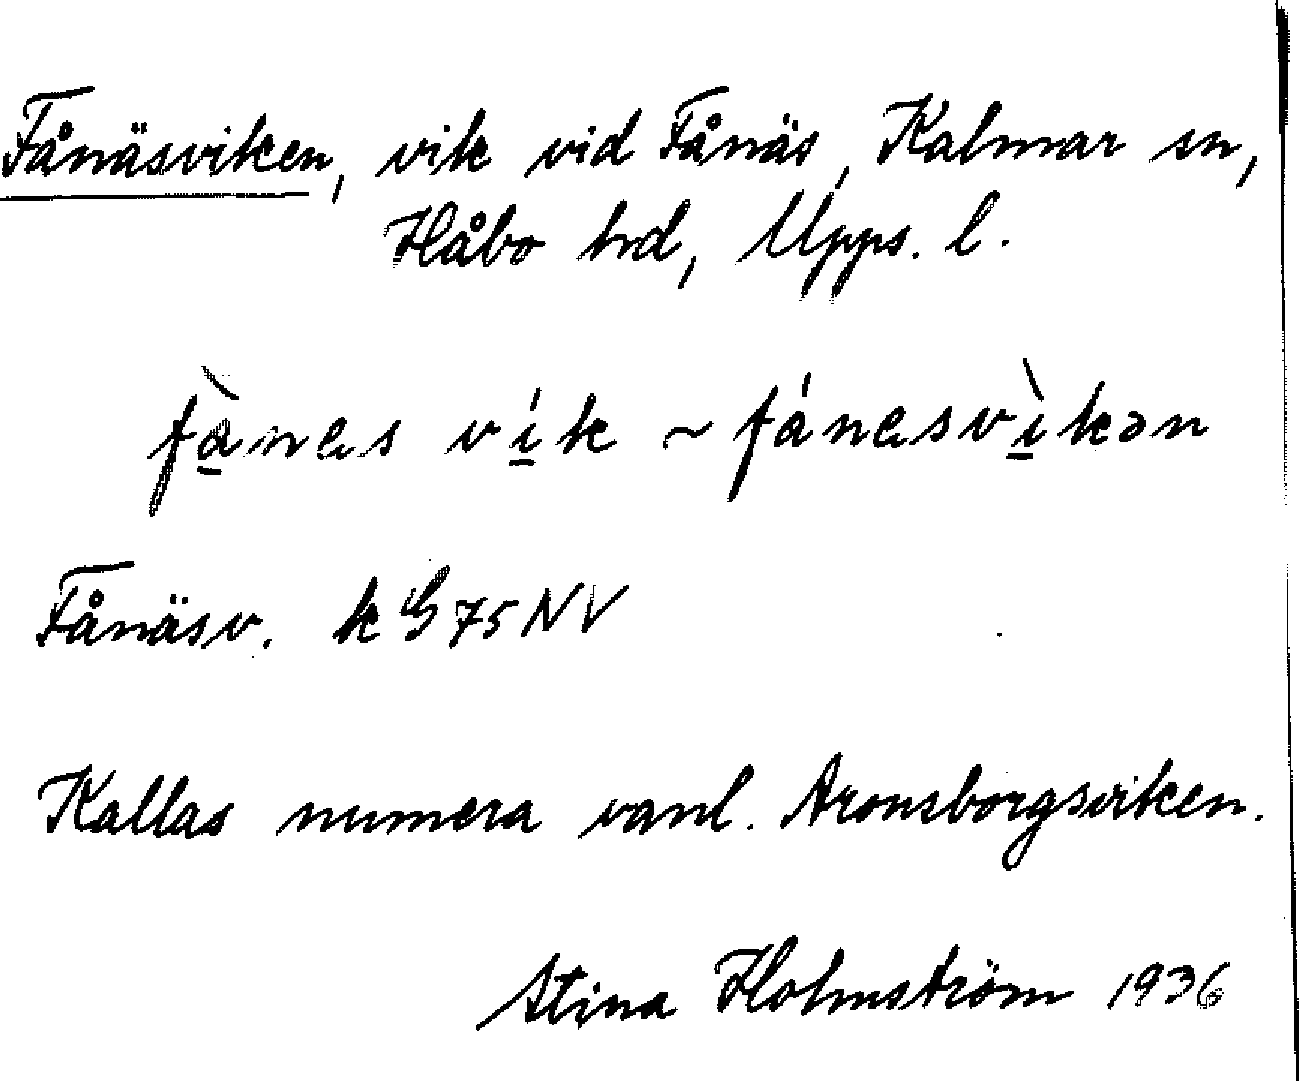 Fånäsviken, vik vid Fånäs, Kalmar sn,
Håbo hrd, Upps. l.
fà̱nɑs ví̱k ~ fánɑsvì̱kən
Fånäsv. k G 75 NV
Kallas numera vanl. Aronsborgsviken.
Stina Holmström 1936